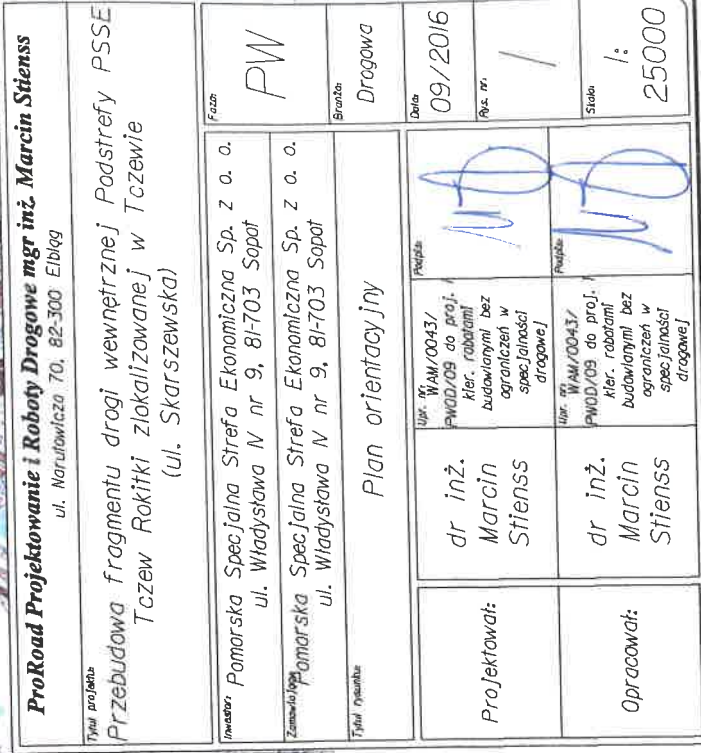 ProRoad Projektowanie i Roboty Drogowe mgr inż. Marcin Stienss
ul. Narutowicza 70, 82-300 Elbląg
Tytuł projektu:
Przebudowa fragmentu drogi wewnętrznej Podstrefy PSSE
Tczew Rokitki zlokalizowanej w Tczewie
(ul. Skarszewska)
Inwestor: Pomorska Specjalna Strefa Ekonomiczna Sp. z o. o.
ul. Władysława IV nr 9, 81-703 Sopot
Faza:
PW
Zamawiający: Pomorska Specjalna Strefa Ekonomiczna Sp. z o. o.
ul. Władysława IV nr 9, 81-703 Sopot
Tytuł rysunku:
Plan orientacyjny
Branża:
Drogowa
Projektował:
dr inż.
Marcin
Stienss
Upr. nr: WAM/0043/
PWOD/09 do proj. i
kier. robotami
budowlanymi bez
ograniczeń w
specjalności
drogowej
Podpis:
Data:
09/2016
Rys. nr:
1
Opracował:
dr inż.
Marcin
Stienss
Upr. nr: WAM/0043/
PWOD/09 do proj. i
kier. robotami
budowlanymi bez
ograniczeń w
specjalności
drogowej
Podpis:
Skala:
1:
25000